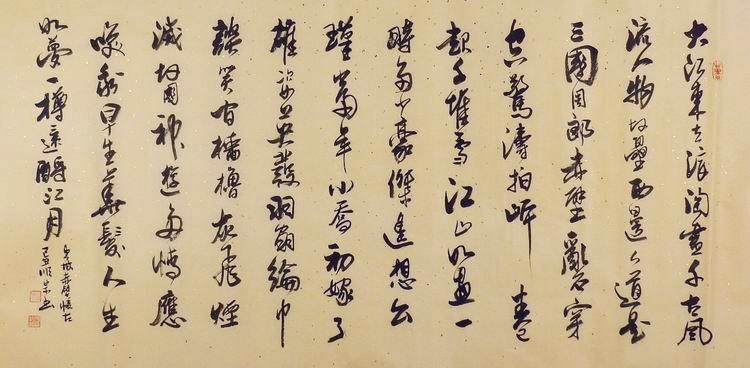 大江東去浪淘盡千古風
流人物故壘西邊人道是
三國周郎赤壁亂石穿
空驚濤拍岸卷
起千堆雪江山如畫一
時多少豪傑遙想公
瑾當年小喬初嫁了
雄姿英發羽扇綸巾
談笑間檣櫓灰飛煙
滅故國神遊多情應
笑我早生華髮人生
如夢一樽還酹江月
東坡赤壁懷古